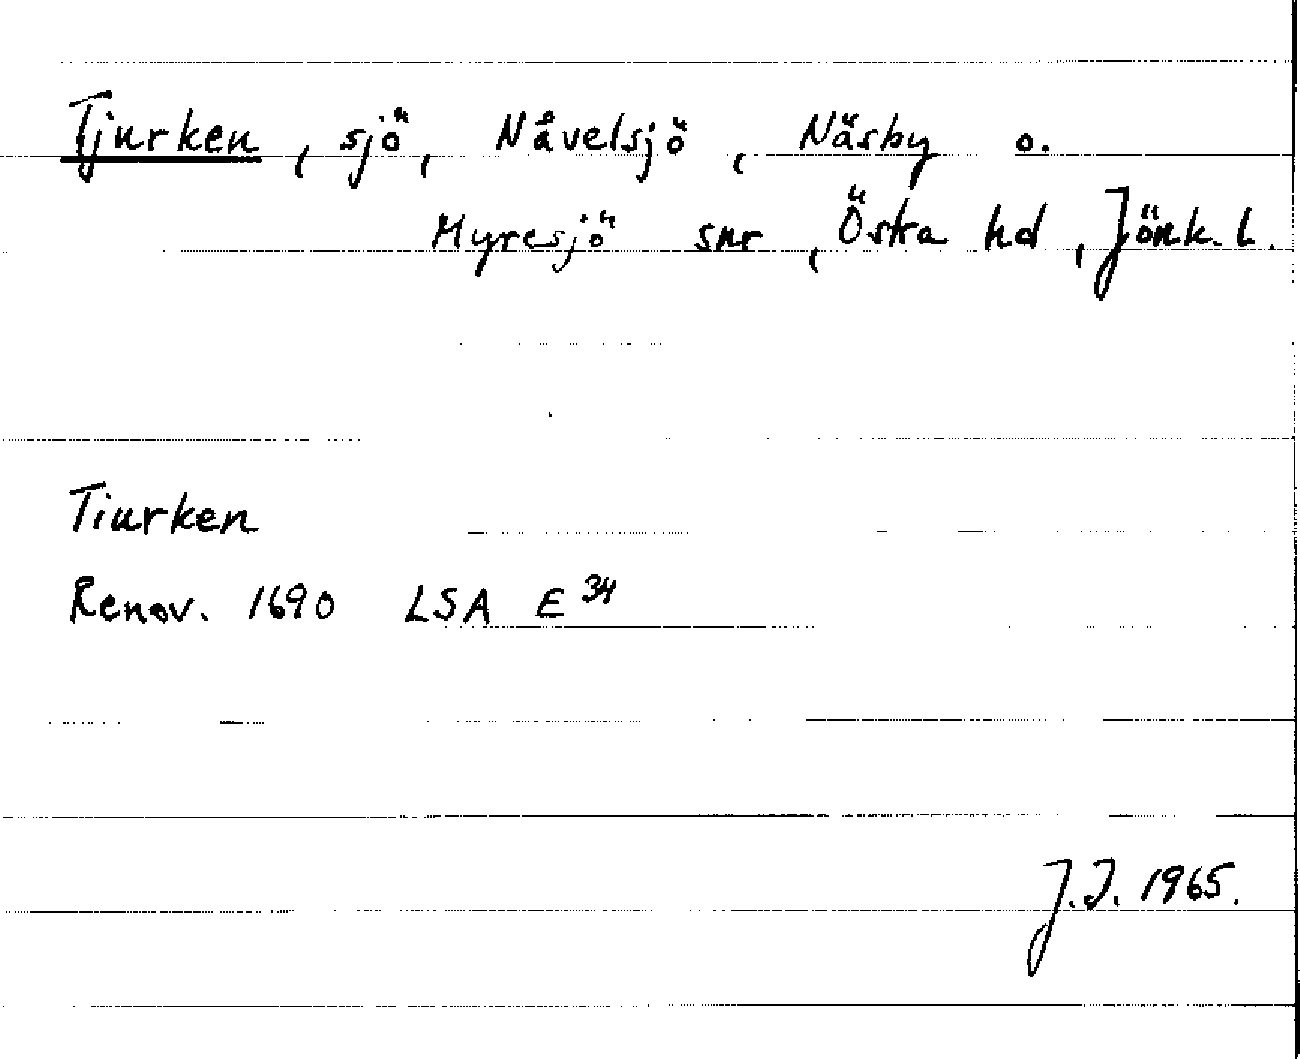 Tjurken, sjö, Nåvelsjö, Näsby o.
Myresjö snr, Östra hd, Jönk. l.
Tiurken
Renov. 1690 LSA E 34
J.I. 1965.